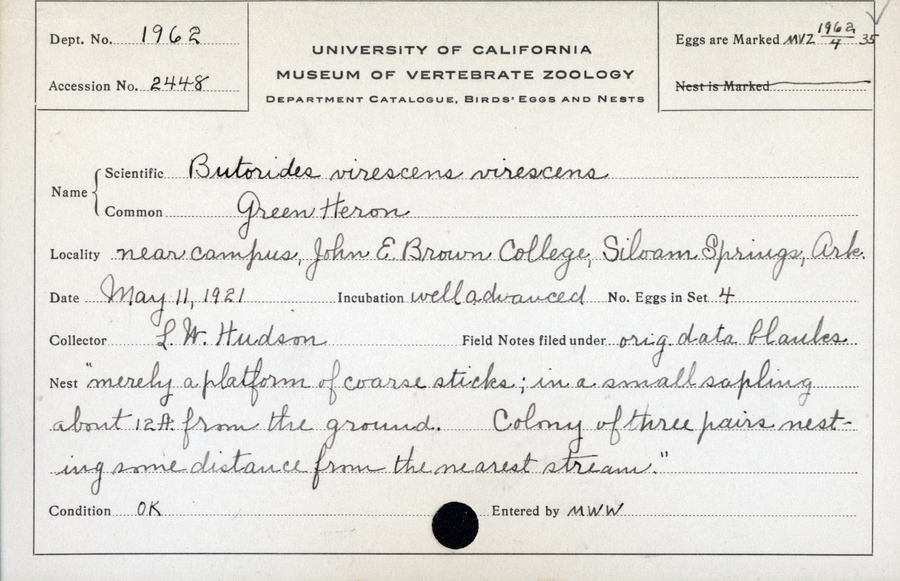 Dept. No. 1962
Accession No. 2448
UNIVERSITY OF CALIFORNIA
MUSEUM OF VERTEBRATE ZOOLOGY
DEPARTMENT CATALOGUE, BIRDS' EGGS AND NESTS
Eggs are Marked MVZ 1962/4 35
Nest is Marked
Name { Scientific Butorides virescens virescens
Common Green Heron
Locality near campus, John E. Brown College, Siloam Springs, Ark.
Date May 11, 1921 Incubation well advanced No. Eggs in Set 4
Collector L. W. Hudson Field Notes filed under orig data blanks
Nest "merely a platform of coarse sticks; in a small sapling
about 12 ft. from the ground. Colony of three pairs nest-
ing some distance from the nearest stream."
Condition OK Entered by MWW